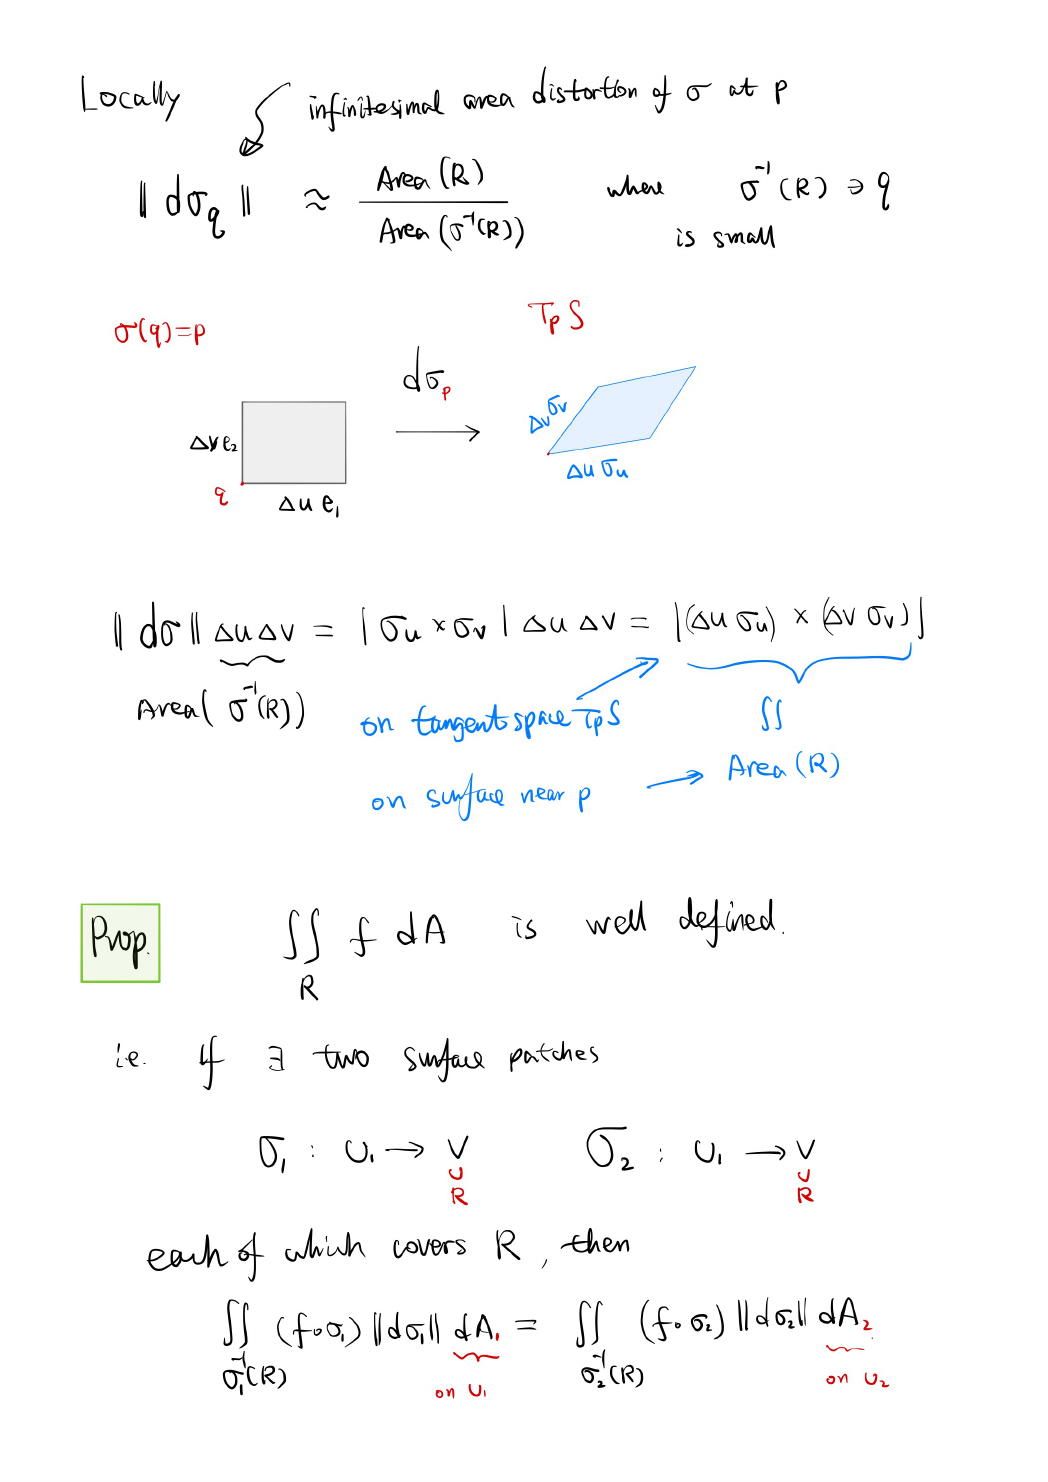 Locally
infinitesimal area distortion of σ at p
‖ dσ_q ‖ ≈ Area (R) / Area (σ⁻¹(R)) where σ⁻¹(R) ∋ q
is small
σ(q)=p
T_p S
dσ_p
Δv e₂
Δv σ_v
q
Δu e₁
Δu σ_u
‖ dσ ‖ Δu Δv = | σ_u × σ_v | Δu Δv = |(Δu σ_u) × (Δv σ_v)|
Area( σ⁻¹(R))
on tangent space T_p S
∬
Area (R)
on surface near p
Prop.
∬_R f dA is well defined.
i.e. If ∃ two surface patches
σ₁ : U₁ → V σ₂ : U₁ → V
∪ ∪
R R
each of which covers R , then
∬_{σ₁⁻¹(R)} (f∘σ₁) ‖dσ₁‖ dA₁ = ∬_{σ₂⁻¹(R)} (f∘σ₂) ‖dσ₂‖ dA₂
on U₁ on U₂